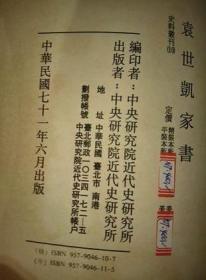 袁世凱家書
史料叢刊(10)
定價
精裝本新
平裝本新
編印者：中央研究院近代史研究所
出版者：中央研究院近代史研究所
地址：中華民國 臺北市 南港
劃撥帳號：臺北郵政一〇三四一七二—五
中央研究院近代史研究所帳戶
中華民國七十一年六月出版
(精) ISBN 957-9046-10-7
(平) ISBN 957-9046-11-5